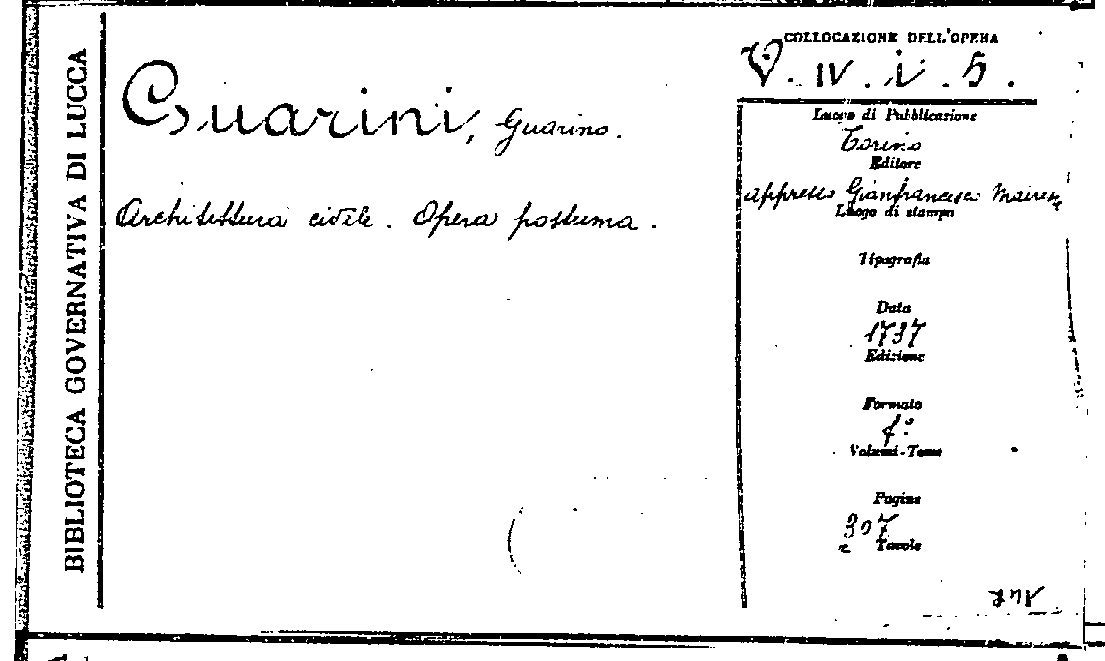 BIBLIOTECA GOVERNATIVA DI LUCCA
Guarini, Guarino.
Architettura civile. Opera postuma.
COLLOCAZIONE DELL'OPERA
V. IV. i. 5.
Luogo di Pubblicazione
Torino
Editore
appresso Gianfrancesco Mairesse
Luogo di stampa
Tipografia
Data
1737
Edizione
Formato
f.º
Volumi-Tomo
Pagine
307
Tavole